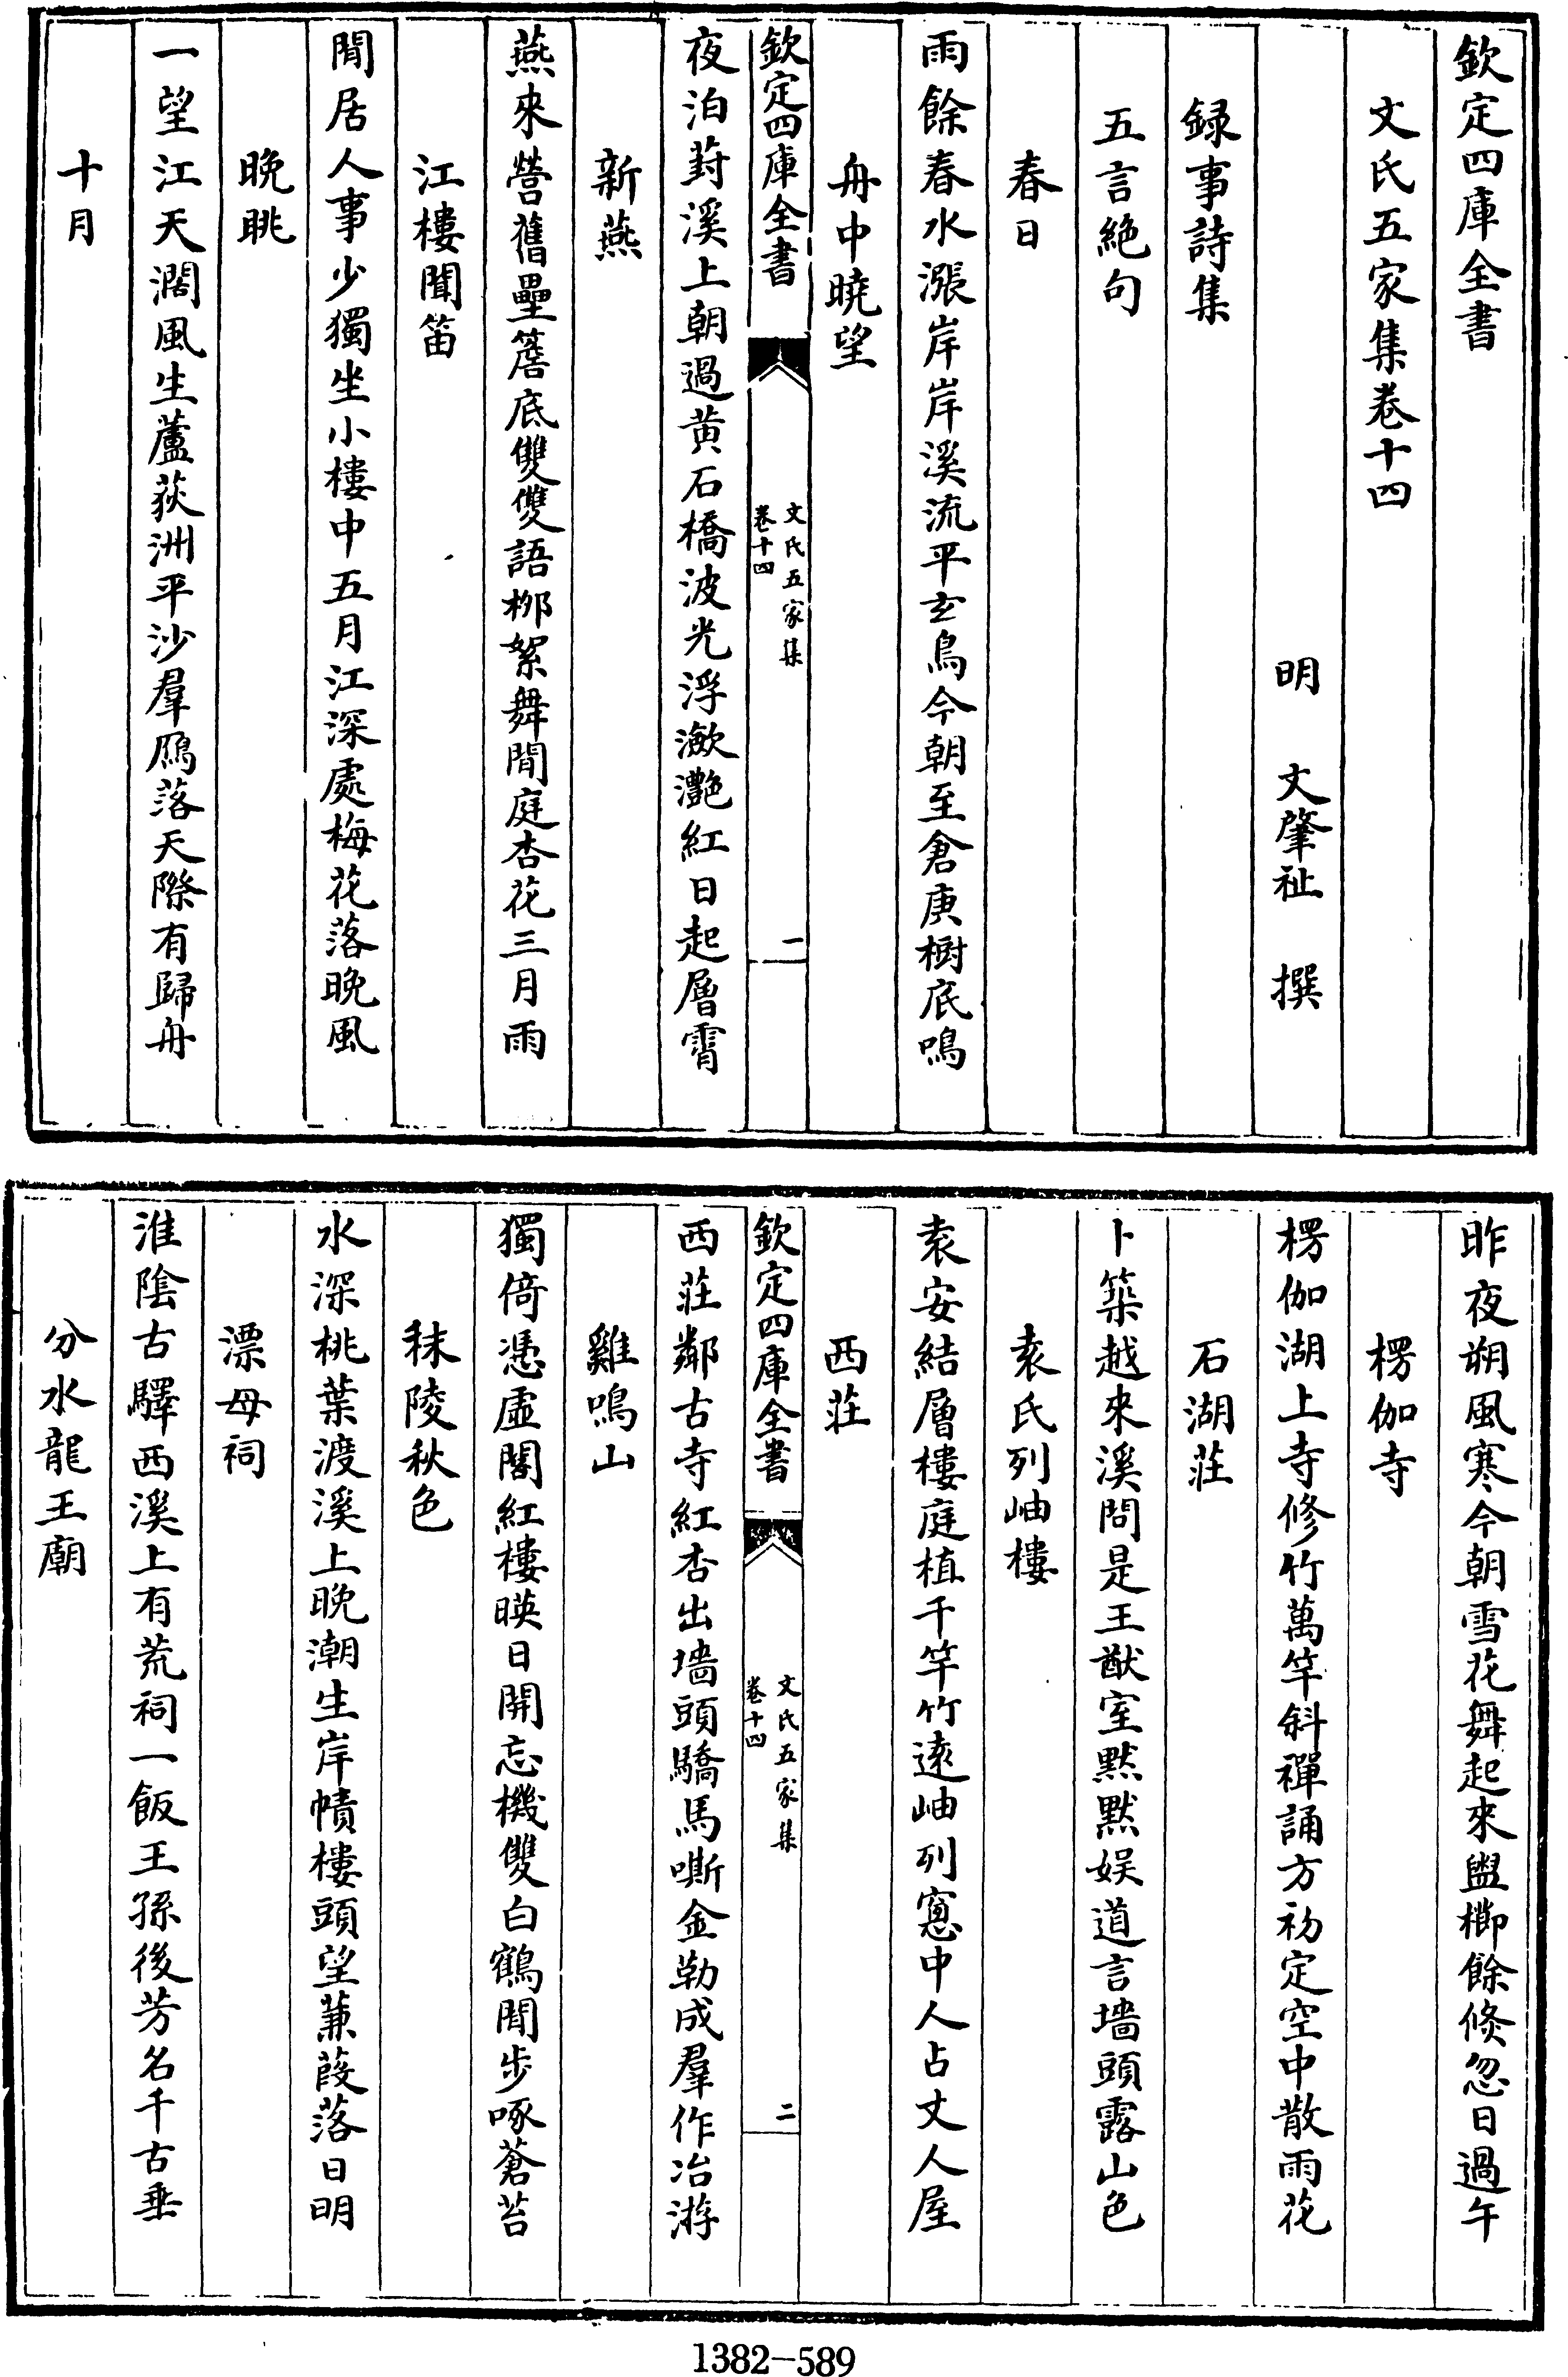 欽定四庫全書
文氏五家集卷十四
明 文肇祉 撰
録事詩集
五言絶句
春日
雨餘春水漲岸岸溪流平玄鳥今朝至倉庚樹底鳴
舟中曉望
欽定四庫全書
文氏五家集
卷十四
一
夜泊葑溪上朝過黄石橋波光浮瀲灧紅日起層霄
新燕
燕來營舊壘簷底雙雙語栁絮舞閒庭杏花三月雨
江樓聞笛
閒居人事少獨坐小樓中五月江深處梅花落晚風
晚眺
一望江天濶風生蘆荻洲平沙羣鴈落天際有歸舟
十月
昨夜朔風寒今朝雪花舞起來盥櫛餘倐忽日過午
楞伽寺
楞伽湖上寺修竹萬竿斜禪誦方初定空中散雨花
石湖莊
卜築越來溪問是王猷室黙黙娱道言墻頭露山色
袁氏列岫樓
袁安結層樓庭植千竿竹逺岫列窓中人占丈人屋
西莊
欽定四庫全書
文氏五家集
卷十四
二
西莊鄰古寺紅杏出墻頭驕馬嘶金勒成羣作冶游
雞鳴山
獨倚憑虚閣紅樓暎日開忘機雙白鶴閒步啄蒼苔
秣陵秋色
水深桃葉渡溪上晚潮生岸幘樓頭望蒹葭落日明
漂母祠
淮隂古驛西溪上有荒祠一飯王孫後芳名千古垂
分水龍王廟
1382-589